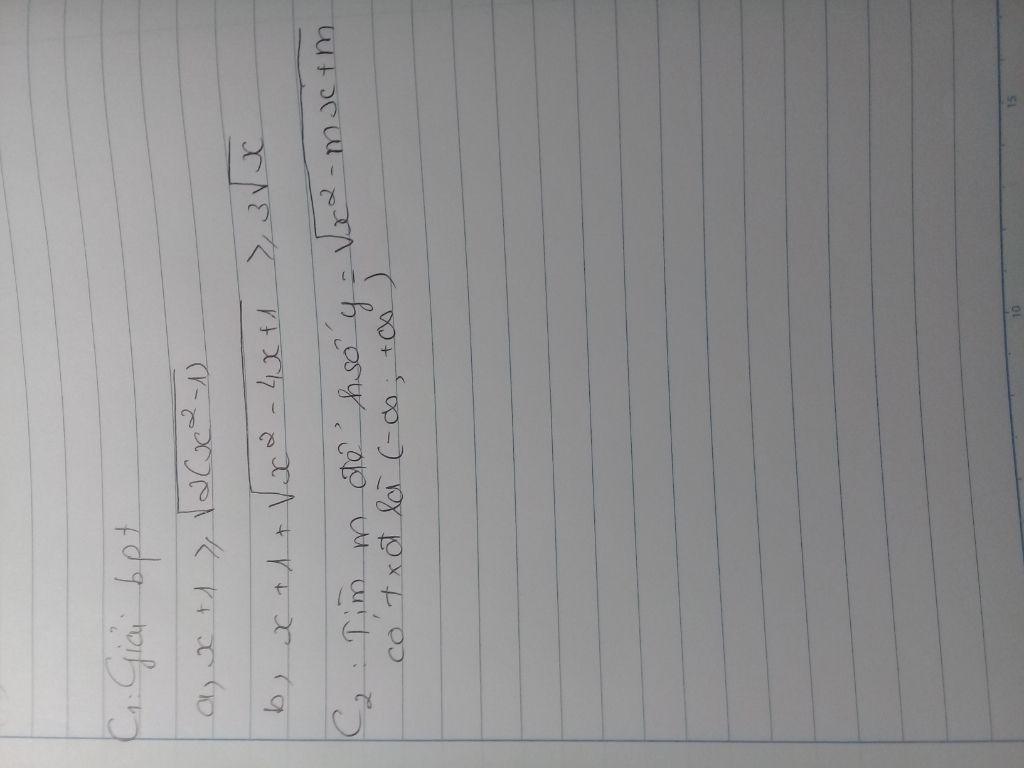 C1: Giải bpt
a, x + 1 ≥ √(2(x² - 1))
b, x + 1 + √(x² - 4x + 1) ≥ 3√x
C2: Tìm m để hsố y = √(x² - mx + m)
có txđ là (-∞; +∞)
15
10